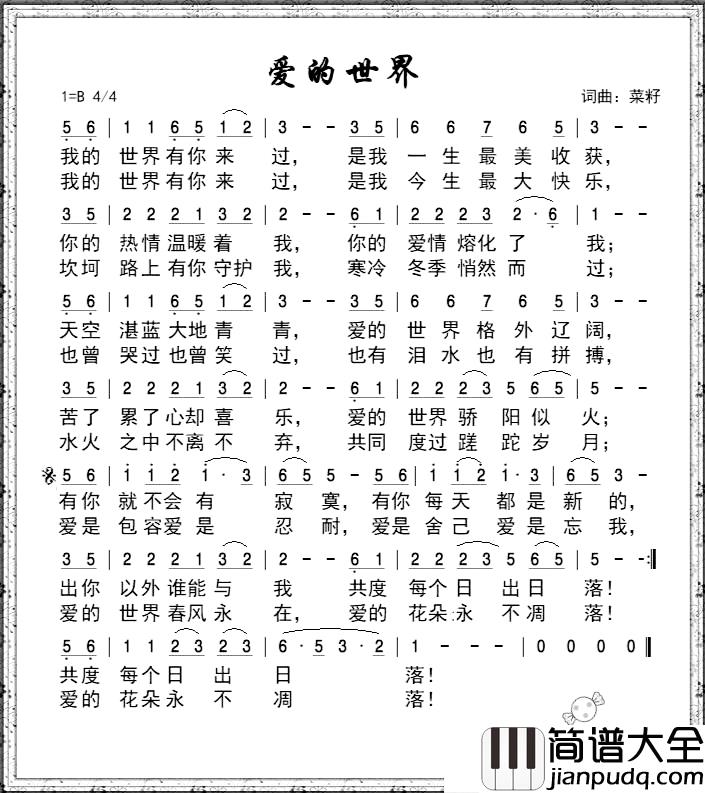 爱的世界
1=B 4/4 词曲：菜籽
5 6 | 1 1 6 5 1 2 | 3 - - 3 5 | 6 6 7 6 5 | 3 - -
我的 世界有你来 过， 是我 一生最美收获，
我的 世界有你来 过， 是我 今生最大快乐，
3 5 | 2 2 2 1 3 2 | 2 - - 6 1 | 2 2 2 3 2 · 6 | 1 - -
你的 热情温暖着 我， 你的 爱情熔化了 我；
坎坷 路上有你守护 我， 寒冷 冬季悄然而 过；
5 6 | 1 1 6 5 1 2 | 3 - - 3 5 | 6 6 7 6 5 | 3 - -
天空 湛蓝大地青 青， 爱的 世界格外辽阔，
也曾 哭过也曾笑 过， 也有 泪水也有拼搏，
3 5 | 2 2 2 1 3 2 | 2 - - 6 1 | 2 2 2 3 5 6 5 | 5 - -
苦了 累了心却喜 乐， 爱的 世界骄阳似 火；
水火 之中不离不 弃， 共同 度过蹉跎岁 月；
5 6 | 1 1 2 1 · 3 | 6 5 5 - 5 6 | 1 1 2 1 · 3 | 6 5 3 -
有你 就不会有 寂 寞， 有你 每天 都是新的，
爱是 包容爱是 忍 耐， 爱是 舍己 爱是忘我，
3 5 | 2 2 2 1 3 2 | 2 - - 6 1 | 2 2 2 3 5 6 5 | 5 - - :‖
出你 以外谁能与 我 共度 每个日 出日 落！
爱的 世界春风永 在， 爱的 花朵永 不凋 落！
5 6 | 1 1 2 3 2 3 | 6 · 5 3 · 2 | 1 - - - | 0 0 0 0 ‖
共度 每个日 出 日 落！
爱的 花朵永 不 凋 落！
简谱大全
jianpudq.com